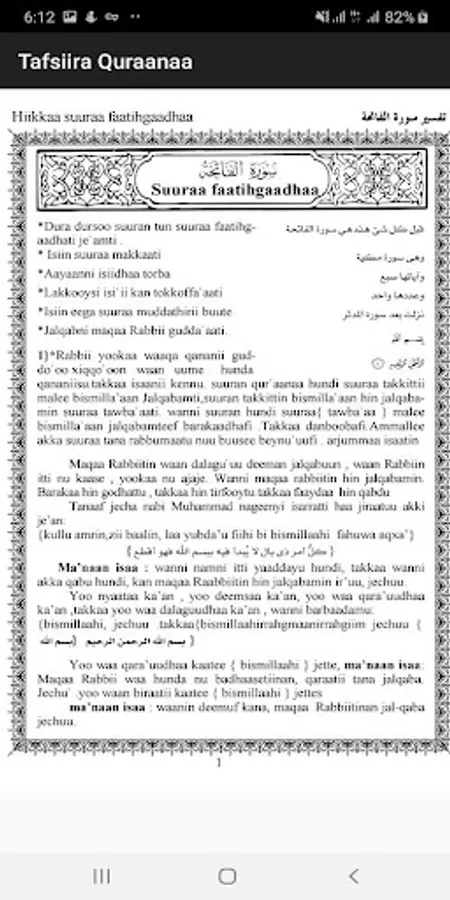 6:12
82%
Tafsiira Quraanaa
Hiikkaa suuraa faatihgaadhaa تفسير سورة الفاتحة
سورة الفاتحة
Suuraa faatihgaadhaa
*Dura dursoo suuran tun suuraa faatihg- قبل كل شئ هذه هي سورة الفاتحة
aadhati je`amti .
* Isiin suuraa makkaati وهى سورة مكية
*Aayaanni isiidhaa torba وآياتها سبع
*Lakkooysi isi`ii kan tokkoffa`aati وعددها واحد
*Isiin eega suuraa muddathirii buute نزلت بعد سورة المدثر
*Jalqabni maqaa Rabbii gudda`aati. بِسمِ اللهِ
1)*Rabbii yookaa waaqa qananii gud- الرَّحمَنِ الرَّحِيمِ
do`oo xiqqo`oon waan uume hunda
qananiisu.takkaa isaanii kennu. suuran qur`aanaa hundi suuraa takkittii
malee bismilla`aan Jalqabamti,suuran takkittin bismilla`aan hin jalqaba-
min suuraa tawba`aati. wanni suuran hundi suuraa{ tawba`aa } malee
bismilla`aan jalqabamteef barakaadhafi .Takkaa danboobafi.Ammallee
akka suuraa tana rabbumaatu nuu buusee beynu`uufi . arjummaa isaatin
Maqaa Rabbiitin waan dalagu`uu deeman jalqabuun , waan Rabbiin
itti nu kaase , yookaa nu ajaje. Wanni maqaa rabbiitin hin jalqabamin.
Barakaa hin godhattu , takkaa hin tirfooytu takkaa faaydaa hin qabdu
Tanaaf jecha nabi Muhammad nageenyi isarratti haa jiraatuu akki
je'an:
{kullu amrin,zii baalin, laa yubda`u fiihi bi bismillaahi fahuwa aqxa`}
{ كلُّ أمر ذى بال لا يُبدأ فيه ببسم الله فهو أقطع }
Ma`naan isaa : wanni namni itti yaaddayu hundi, takkaa wanni
akka qabu hundi, kan maqaa Raabbiitin hin jalqabamin ir`uu, jechuu.
Yoo nyaataa ka`an , yoo deemsaa ka`an, yoo waa qara`uudhaa
ka`an ,takkaa yoo waa dalaguudhaa ka`an , wanni barbaadamu:
{bismillahi, jechuu .takkaa{bismillaahirrahgmaanirrahgiim jechuu {
بسم الله الرحمن الرحيم (بسم الله }
Yoo waa qara`uudhaa kaatee { bismillaahi } jette, ma`naan isaa:
Maqaa Rabbii waa hunda nu badhaasetiinan, qaraatii tana jalqaba.
Jechu` .yoo waan biraatii kaatee { bismillaahi } jettes
ma`naan isaa : waanin deemuf kana, maqaa Rabbiitinan jal-qaba
jechuu.
1